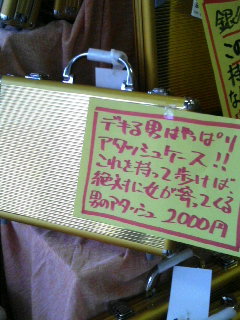 デキる男はやっぱり
アタッシュケース!!
これを持って歩けば、
絶対に女が寄ってくる
男のアタッシュ 2000円
銀
この
持
な